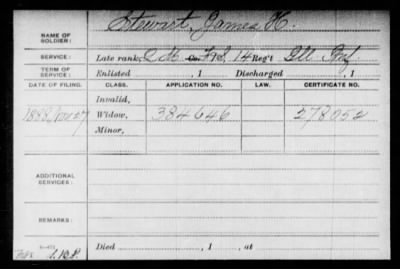 Stewart, James H.
NAME OF SOLDIER:
SERVICE: Late rank, Co. F&S, 14 Reg't Ill Inf
TERM OF SERVICE: Enlisted , 1 Discharged , 1
DATE OF FILING. CLASS. APPLICATION NO. LAW. CERTIFICATE NO.
Invalid,
1888, Nov 27 Widow, 384646 278052
Minor,
ADDITIONAL SERVICES:
REMARKS:
Died , 1 , at